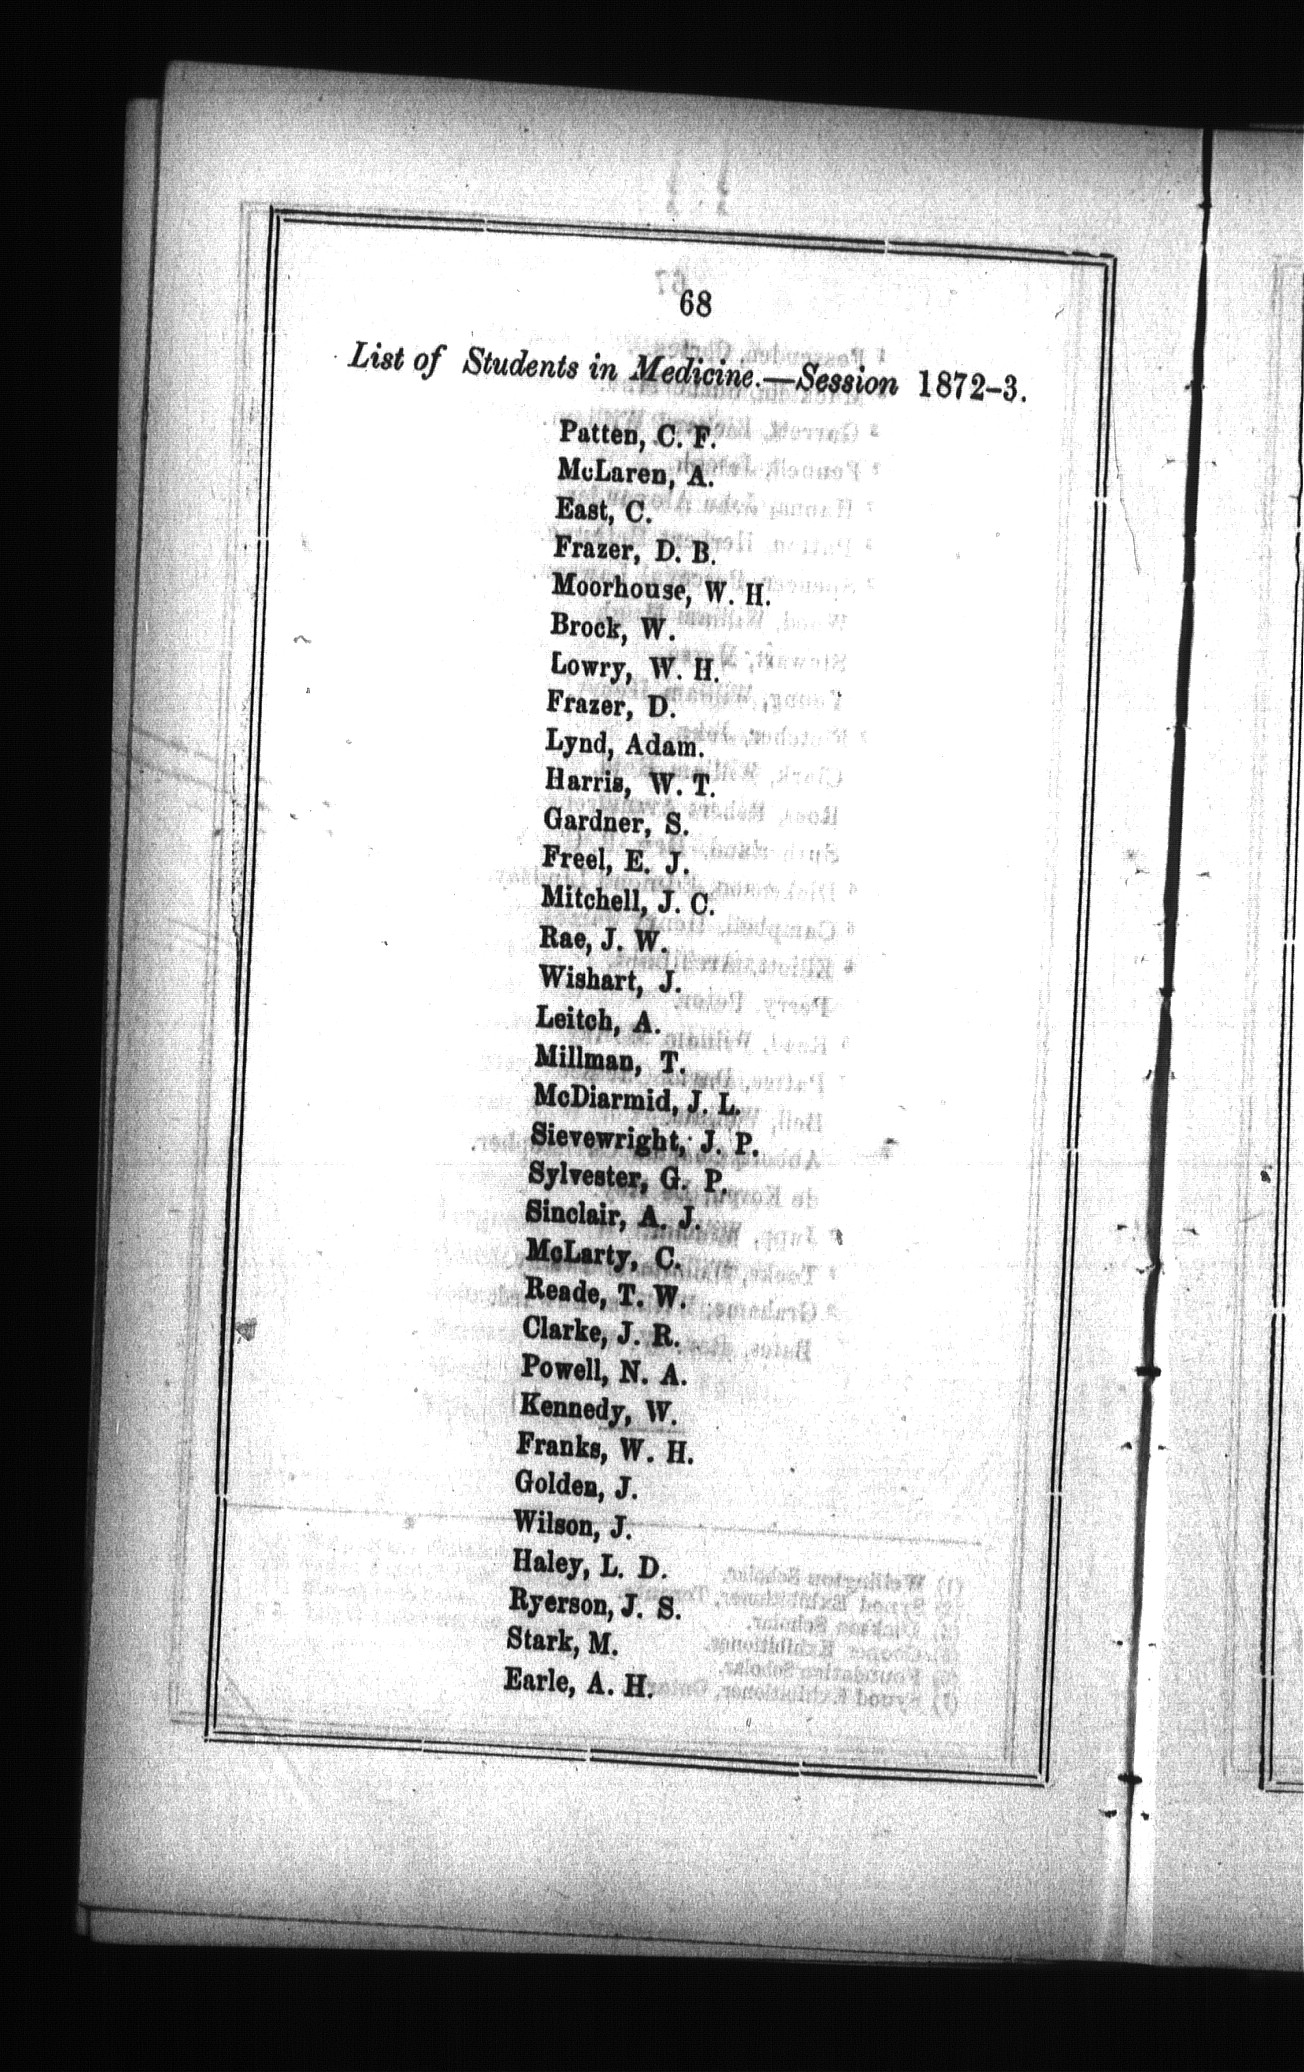 68
List of Students in Medicine.—Session 1872-3.
Patten, C. F.
McLaren, A.
East, C.
Frazer, D. B.
Moorhouse, W. H.
Brock, W.
Lowry, W. H.
Frazer, D.
Lynd, Adam.
Harris, W. T.
Gardner, S.
Freel, E. J.
Mitchell, J. C.
Rae, J. W.
Wishart, J.
Leitch, A.
Millman, T.
McDiarmid, J. L.
Sievewright, J. P.
Sylvester, G. P.
Sinclair, A. J.
McLarty, C.
Reade, T. W.
Clarke, J. R.
Powell, N. A.
Kennedy, W.
Franks, W. H.
Golden, J.
Wilson, J.
Haley, L. D.
Ryerson, J. S.
Stark, M.
Earle, A. H.